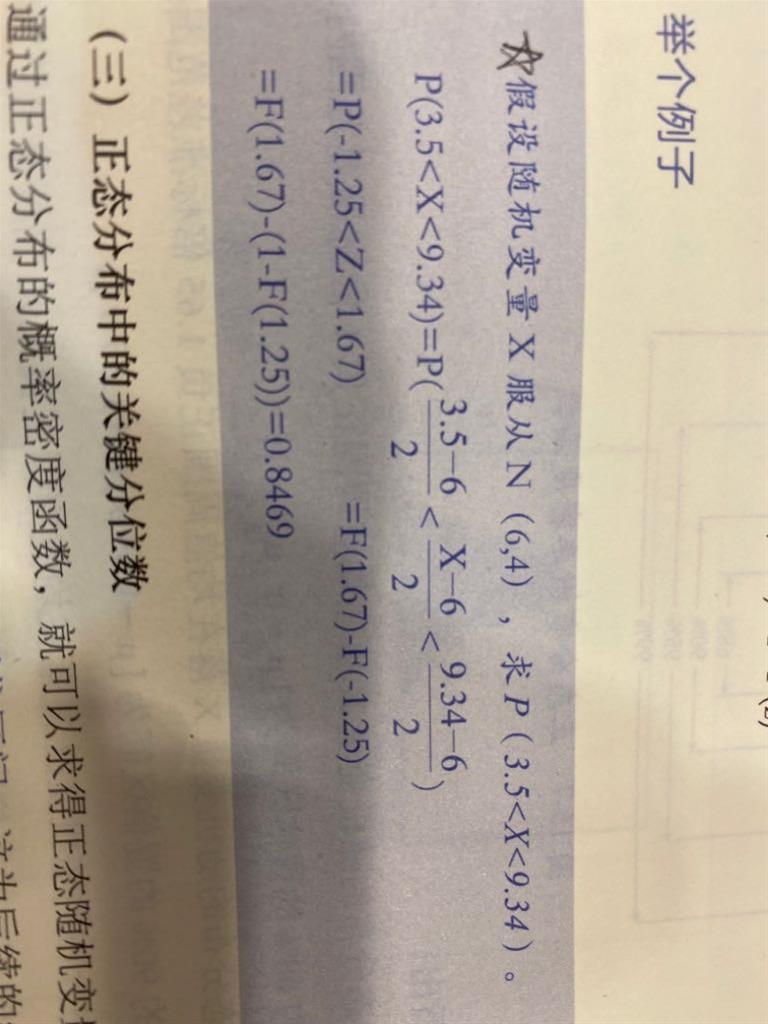 举个例子
假设随机变量X服从N（6,4），求P（3.5<X<9.34）。
P(3.5<X<9.34)=P(\frac{3.5-6}{2}<\frac{X-6}{2}<\frac{9.34-6}{2})
=P(-1.25<Z<1.67) =F(1.67)-F(-1.25)
=F(1.67)-(1-F(1.25))=0.8469
（三）正态分布中的关键分位数
通过正态分布的概率密度函数，就可以求得正态随机变